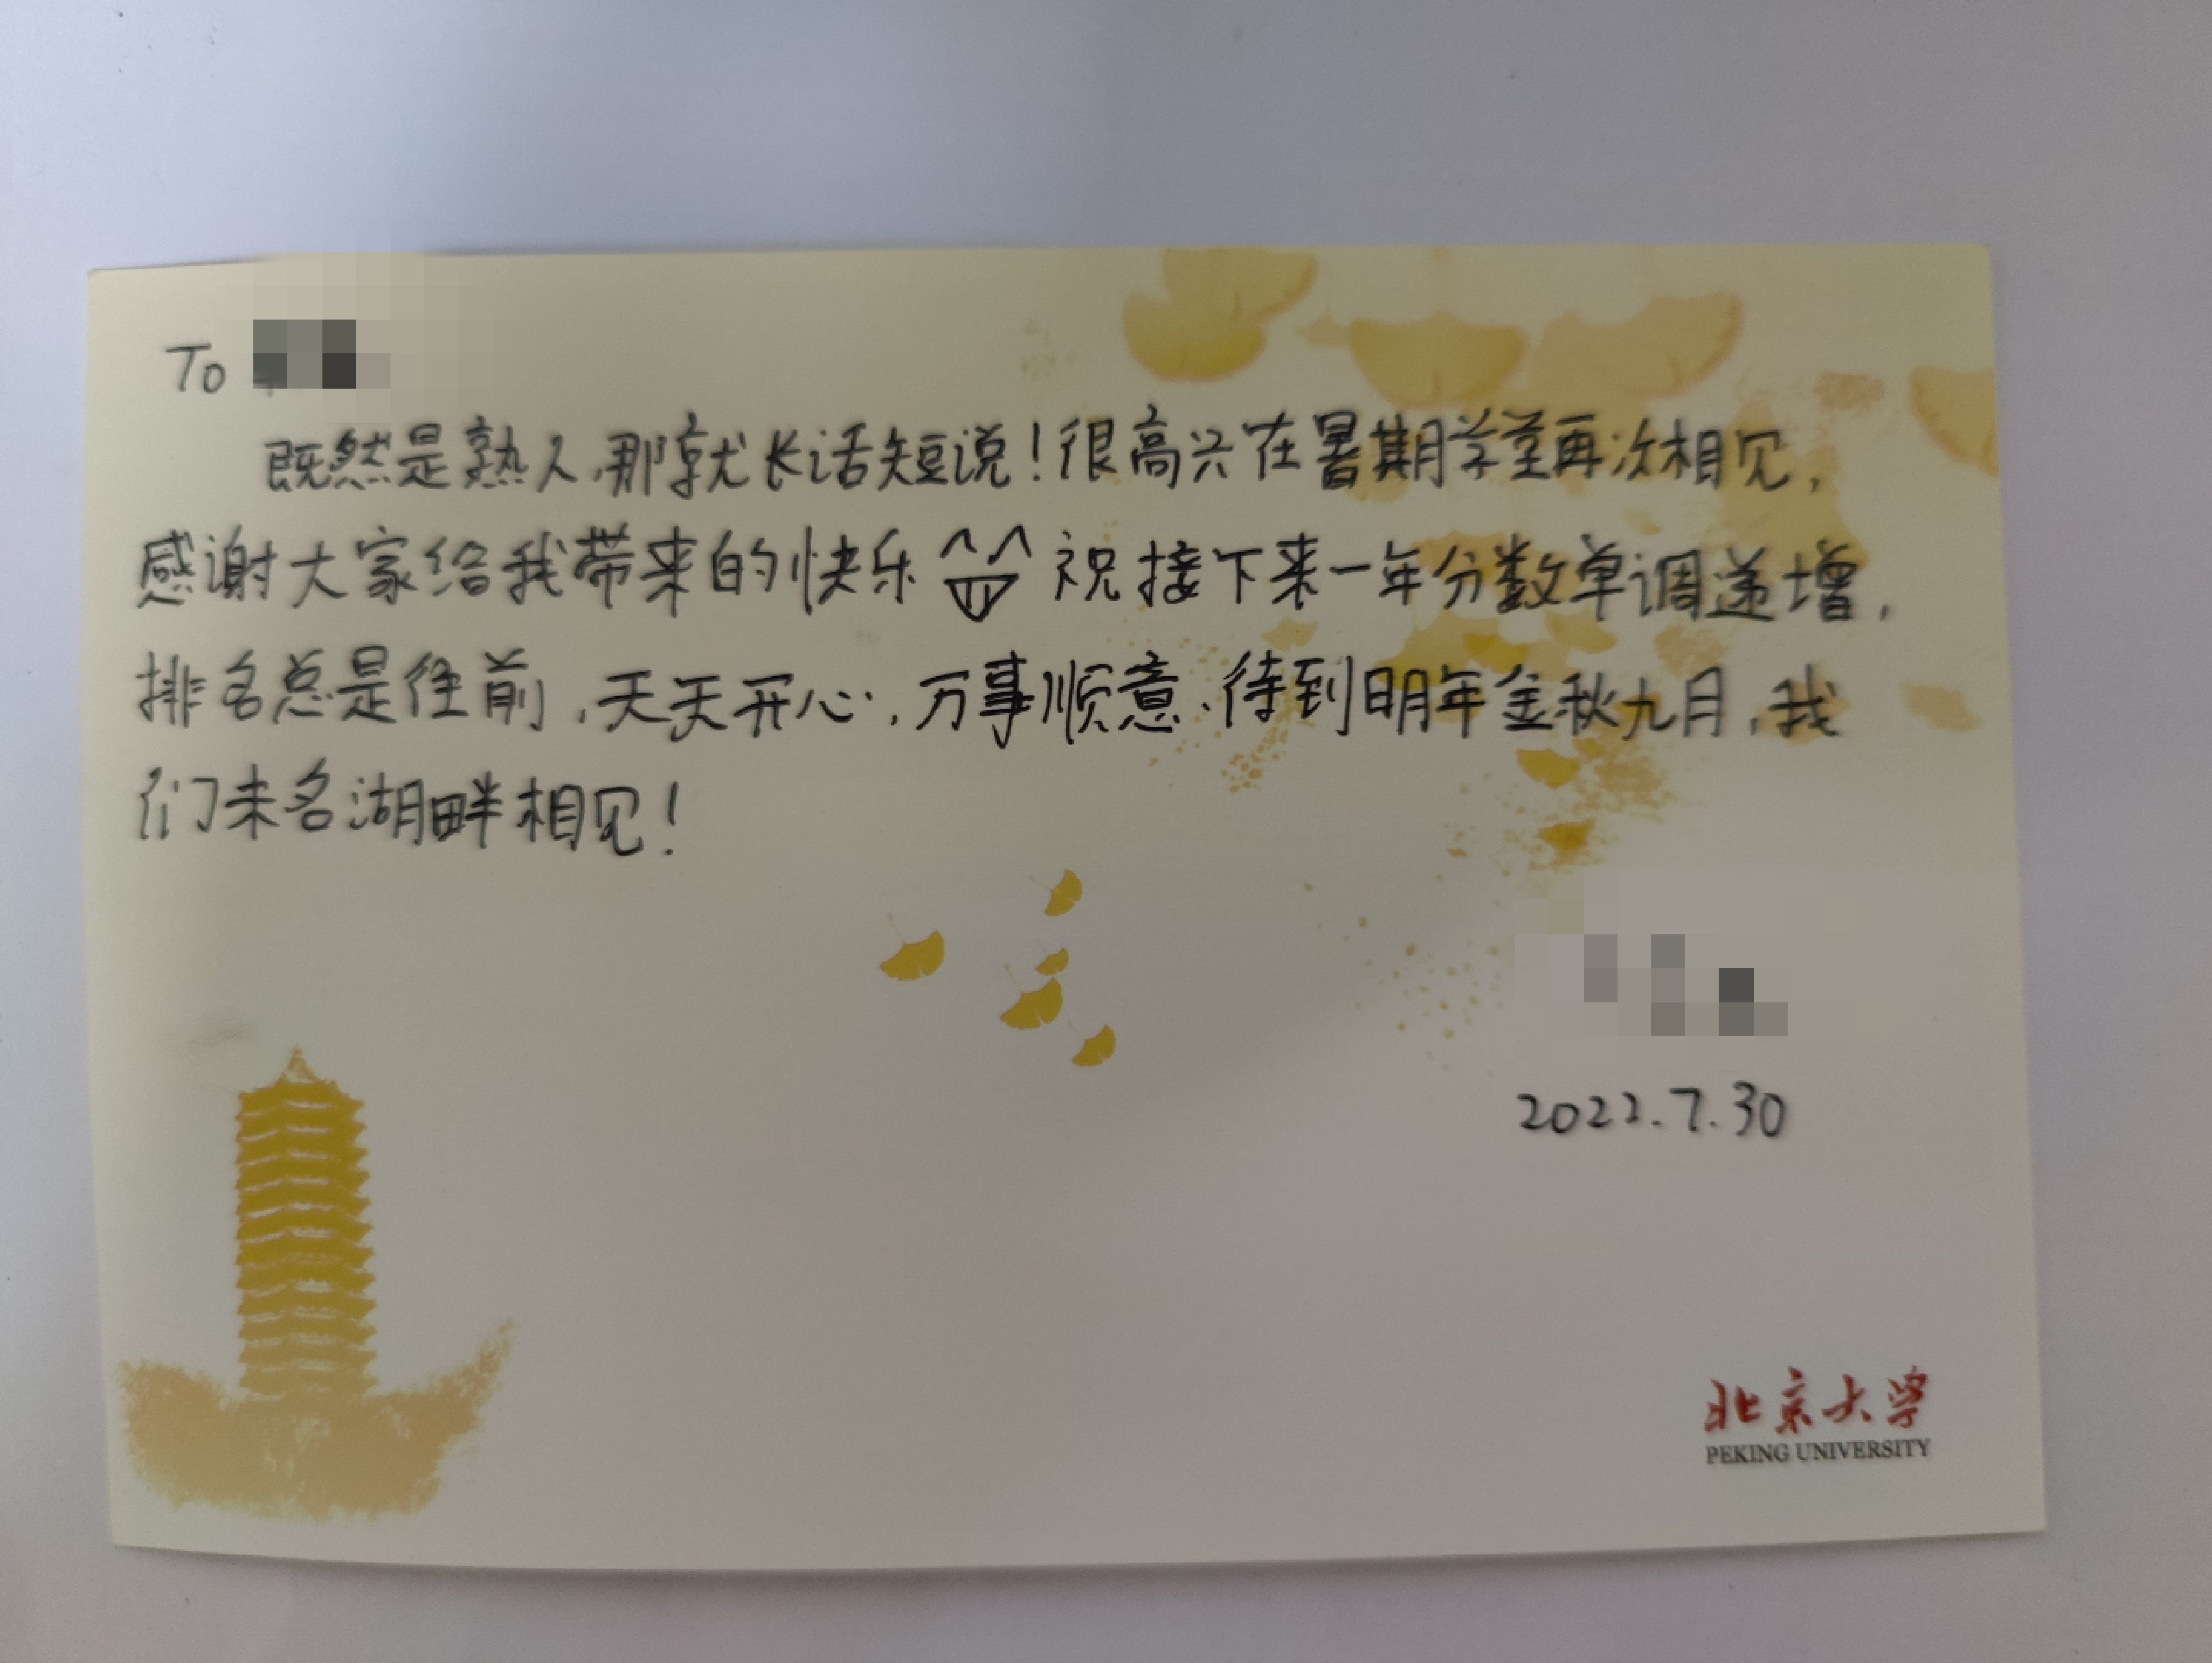 To
既然是熟人,那就长话短说!很高兴在暑期学堂再次相见,
感谢大家给我带来的快乐 祝接下来一年分数单调递增,
排名总是往前,天天开心,万事顺意.待到明年金秋九月,我
们未名湖畔相见!
2022.7.30
北京大学
PEKING UNIVERSITY